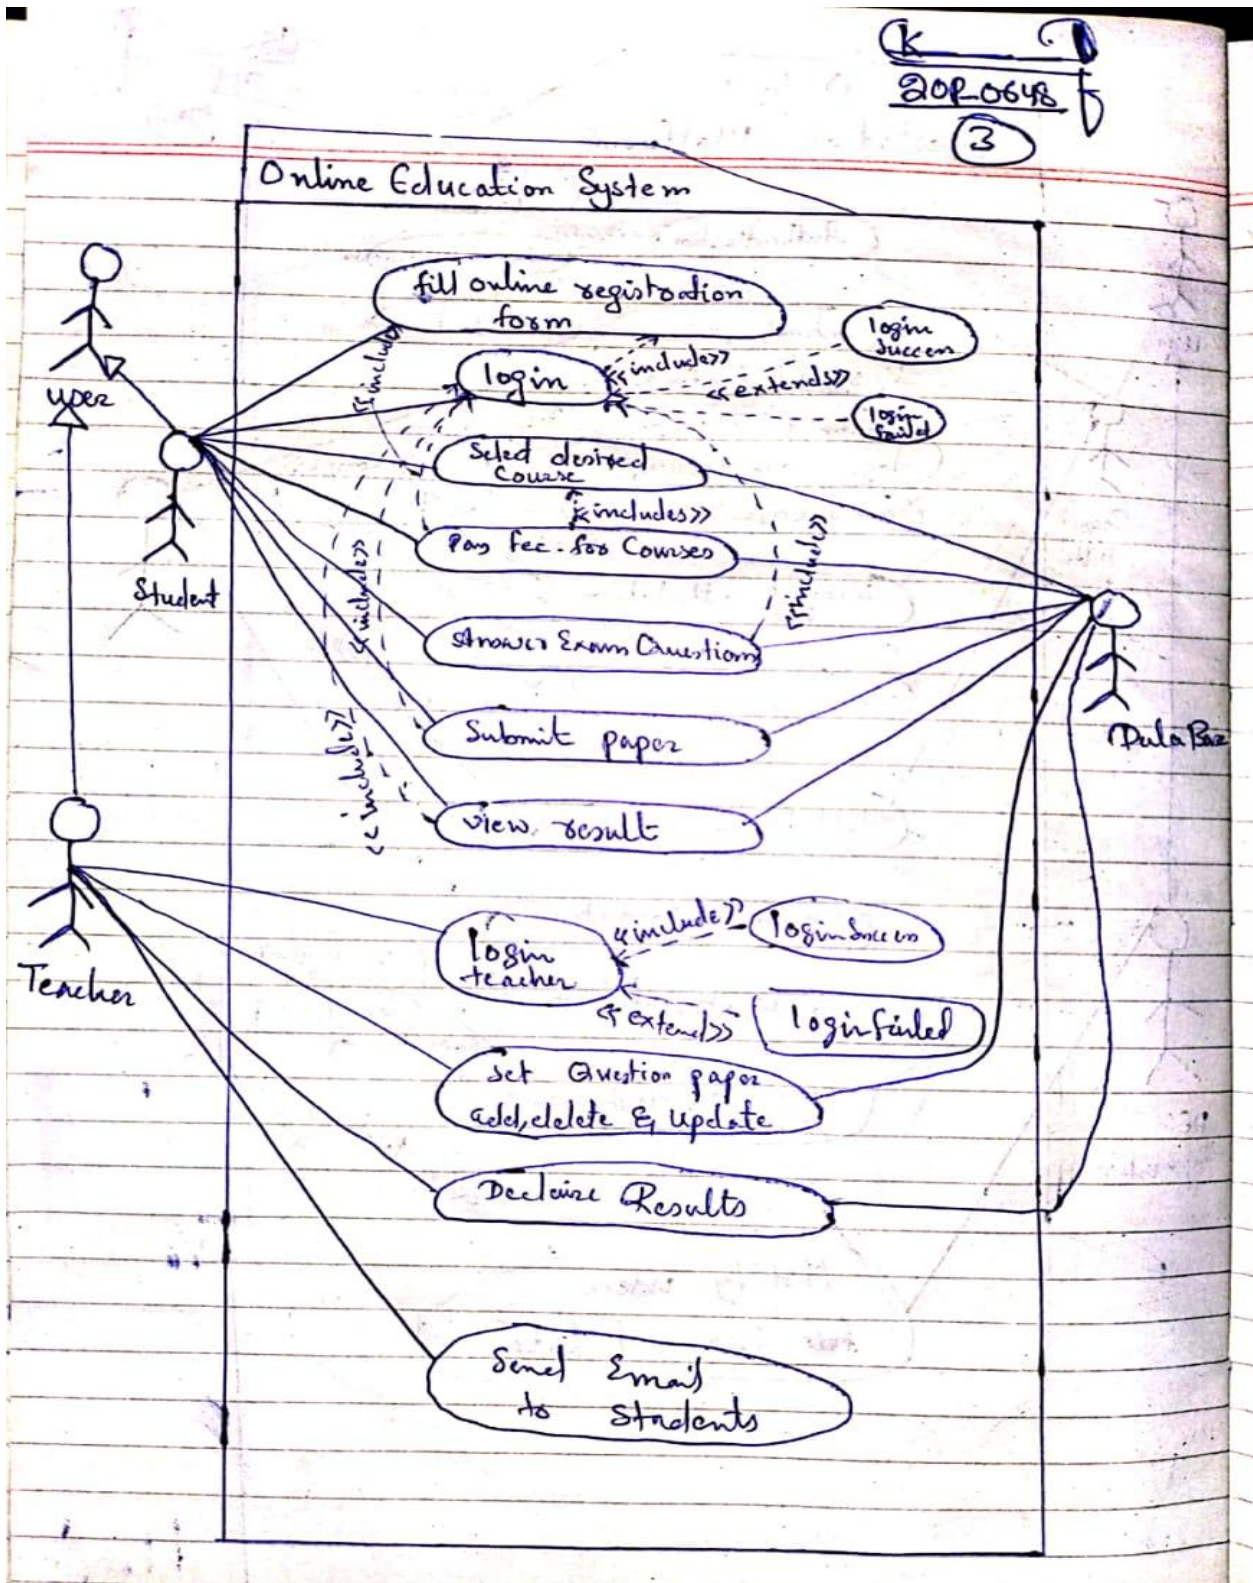 K
20P_0648
3
Online Education System
fill online registration
form
login
<<include>>
login
Success
<<extends>>
login
faild
<<include>>
Select desired
Course
<<includes>>
Pay fee for Courses
<<include>>
<<include>>
Answer Exam Questions
Submit paper
<<include>>
<<include>>
view result
user
Student
Teacher
login
teacher
<<include>>
login Success
<<extend>>
login failed
Set Question paper
add, delete & update
Declaire Results
Send Email
to Students